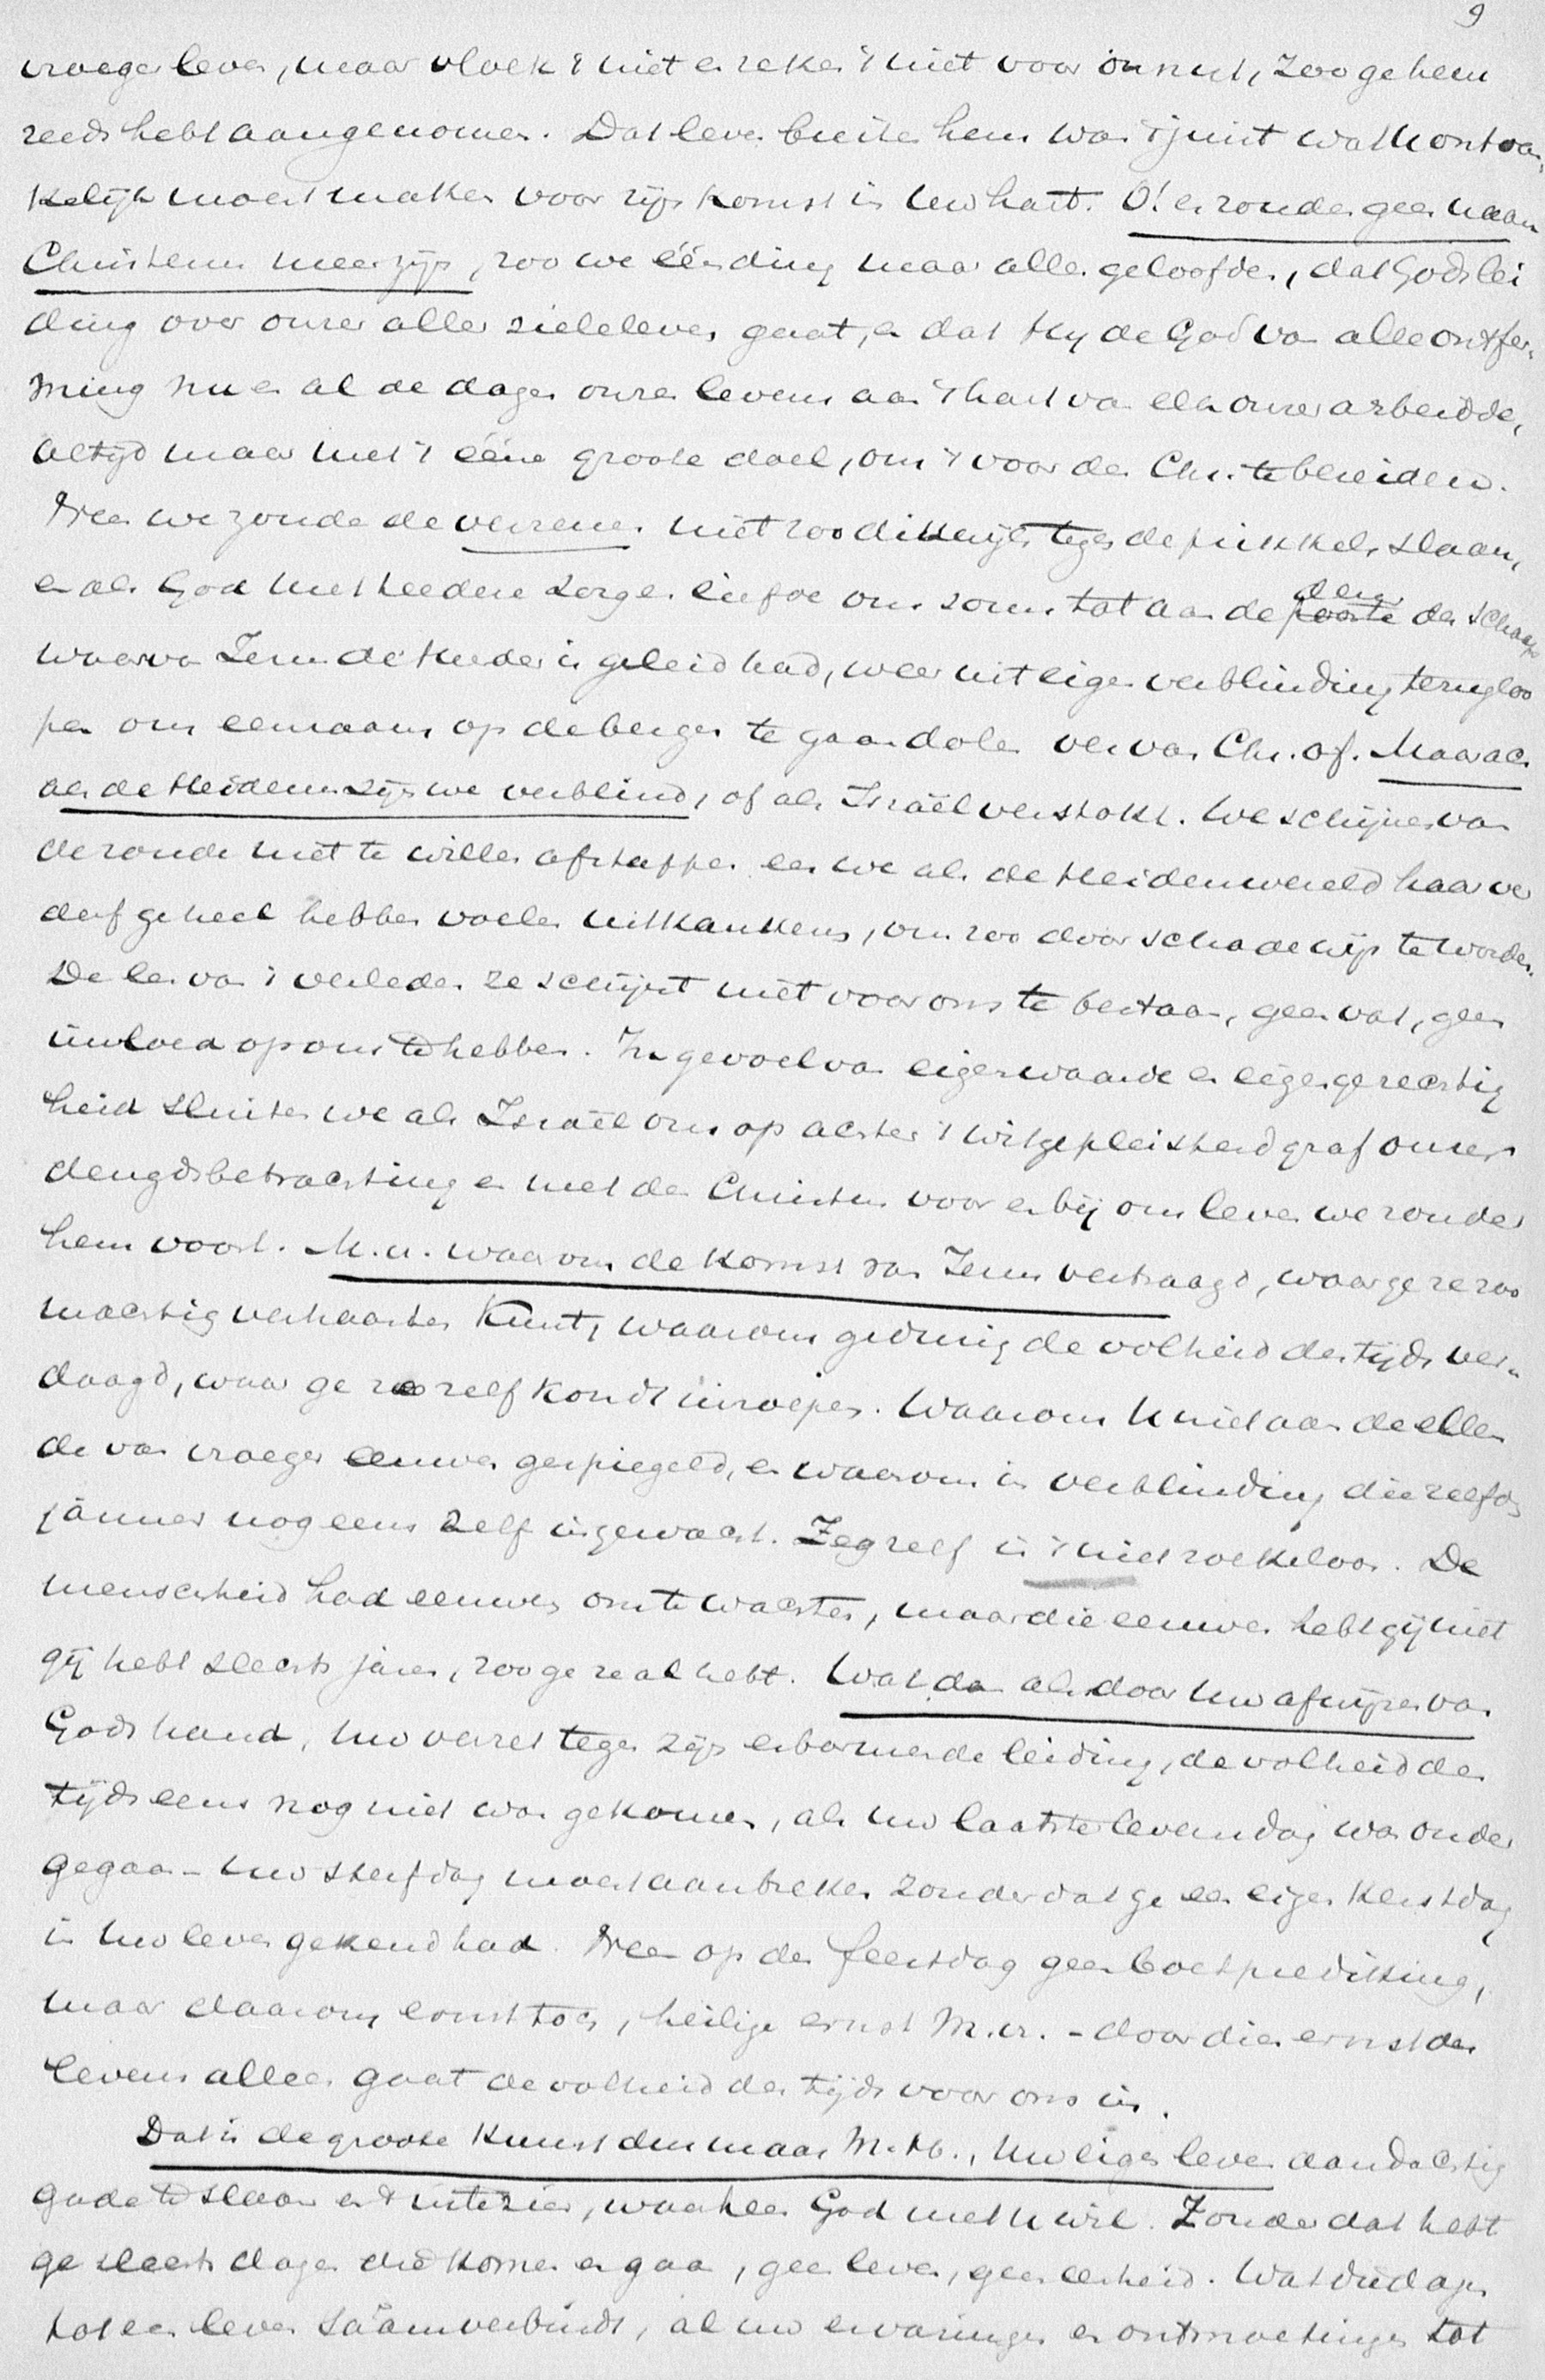 9
vroeger leven, maar vloek 't niet en reken 't niet voor onnut, zoo ge hem
reeds hebt aangenomen. Dat leven buiten hem was 't juist wat U ontvan-
kelijk moest maken voor zijn komst in Uw hart. O! er zouden geen naam
Christenen meer zijn, zoo we één ding maar allen geloofden, dat Gods lei
ding over onzer aller zieleleven gaat, en dat Hij de God van alle ontfer-
ming nu en al de dagen onzes levens aan 't hart van elk onzer arbeidde,
altijd maar met 't ééne groote doel, om 't voor den Chr. te bereiden.
Neen we zouden de verzenen niet zoo dikwijls tegen de prikkels slaan,
en als God met teedere zorg en liefde ons soms tot aan de poorte der schaaps
deur
waarvan Jezus de kudde in geleid had, weer uit eigen verblinding terugloo
pen om eenzaam op de bergen te gaan dolen ver van Chr. af. Maar ach
als de Heidenen zijn we verblind, of als Israël verstokt. We schijnen van
de zonde niet te willen afstappen eer we als de Heidenwereld haar ver
derf geheel hebben voelen uitkankeren, om zoo door schade wijs te worden.
De les van 't verleden ze schijnt niet voor ons te bestaan, geen vat, geen
invloed op ons te hebben. In gevoel van eigenwaarde en eigengerechtig
heid sluiten we als Israël ons op achter 't witgepleisterd graf onzer
deugdsbetrachting en met den Christus voor en bij ons leven we zonder
hem voort. M.v. waarom de komst van Jezus vertraagd, waar ge ze zoo
machtig verhaasten kunt, waarom gedurig de volheid des tijds ver-
daagd, waar ge ze zelf kondt inroepen. Waarom U niet aan de ellen
de van vroeger eeuwen gespiegeld, en waarom in verblinding diezelfde
jammer nog eens zelf ingewacht. Zeg zelf is 't niet roekeloos. De
menschheid had eeuwen om te wachten, maar die eeuwen hebt gij niet
gij hebt slechts jaren, zoo ge ze al hebt. Wat dan als door Uw afwijzen van
Gods hand, Uw verzet tegen zijn erbarmende leiding, de volheid des
tijds eens nog niet was gekomen, als Uw laatste levensdag was onder
gegaan - Uw sterfdag moest aanbreken zonder dat ge een eigen Kerstdag
in Uw leven gekend had. Neen op den feestdag geen boetprediking,
maar daarom ernst toch, heilige ernst M.v. - door dien ernst des
levens alleen gaat de volheid des tijds voor ons in.
Dat is de groote kunst dus maar M.H., Uw eigen leven aandachtig
gade te slaan en 't uit te zien, waarheen God met U wil. Zonder dat hebt
ge slechts dagen die komen en gaan, geen leven, geen eenheid. Wat die dagen
tot een leven saâmverbindt, al uw ervaringen en ontmoetingen tot